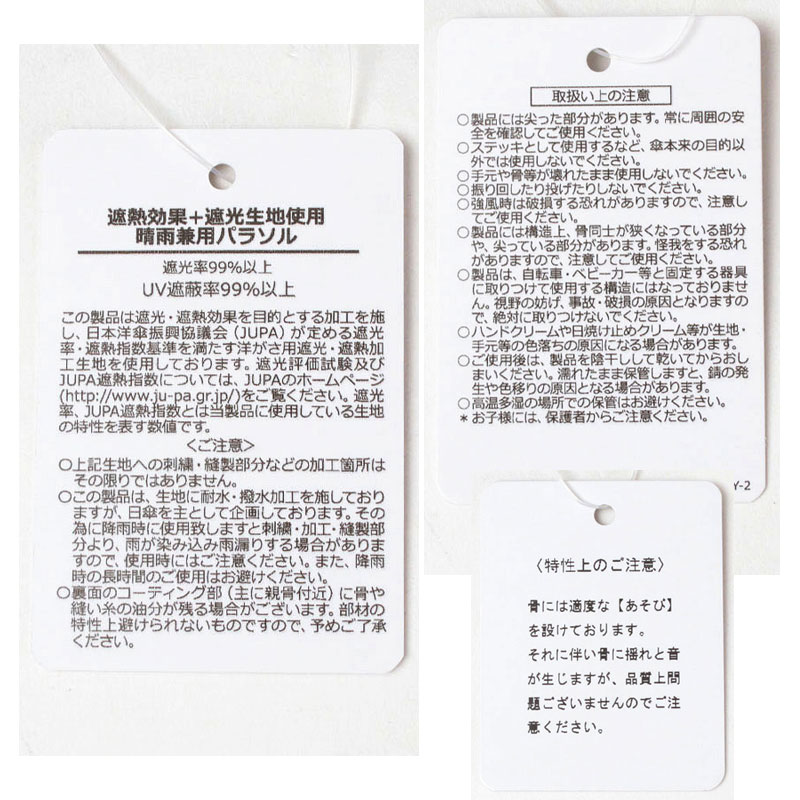 遮熱効果+遮光生地使用
晴雨兼用パラソル
遮光率99%以上
UV遮蔽率99%以上
この製品は遮光・遮熱効果を目的とする加工を施
し、日本洋傘振興協議会(JUPA)が定める遮光
率・遮熱指数基準を満たす洋がさ用遮光・遮熱加
工生地を使用しております。遮光評価試験及び
JUPA遮熱指数については、JUPAのホームページ
(http://www.ju-pa.gr.jp/)をご覧ください。遮光
率、JUPA遮熱指数とは当製品に使用している生地
の特性を表す数値です。
<ご注意>
○上記生地への刺繍・縫製部分などの加工箇所は
その限りではありません。
○この製品は、生地に耐水・撥水加工を施しており
ますが、日傘を主として企画しております。その
為に降雨時に使用致しますと刺繍・加工・縫製部
分より、雨が染み込み雨漏りする場合があります
ので、使用時にはご注意ください。また、降雨
時の長時間のご使用はお避けください。
○裏面のコーティング部(主に親骨付近)に骨や
縫い糸の油分が残る場合がございます。部材の
特性上避けられないものですので、予めご了承
ください。
取扱い上の注意
○製品には尖った部分があります。常に周囲の安
全を確認してご使用ください。
○ステッキとして使用するなど、傘本来の目的以
外では使用しないでください。
○手元や骨等が壊れたまま使用しないでください。
○振り回したり投げたりしないでください。
○強風時は破損する恐れがありますので、注意し
てご使用ください。
○製品には構造上、骨同士が狭くなっている部分
や、尖っている部分があります。怪我をする恐れ
がありますので、注意してご使用ください。
○製品は、自転車・ベビーカー等と固定する器具
に取りつけて使用する構造にはなっておりませ
ん。視野の妨げ、事故・破損の原因となりますの
で、絶対に取りつけないでください。
○ハンドクリームや日焼け止めクリーム等が生地・
手元等の色落ちの原因になる場合があります。
○ご使用後は、製品を陰干しして乾いてからおし
まいください。濡れたまま保管しますと、錆の発
生や色移りの原因となる場合があります。
○高温多湿の場所での保管はお避けください。
*お子様には、保護者からご注意ください。
Y-2
〈特性上のご注意〉
骨には適度な【あそび】
を設けております。
それに伴い骨に揺れと音
が生じますが、品質上問
題ございませんのでご注
意ください。